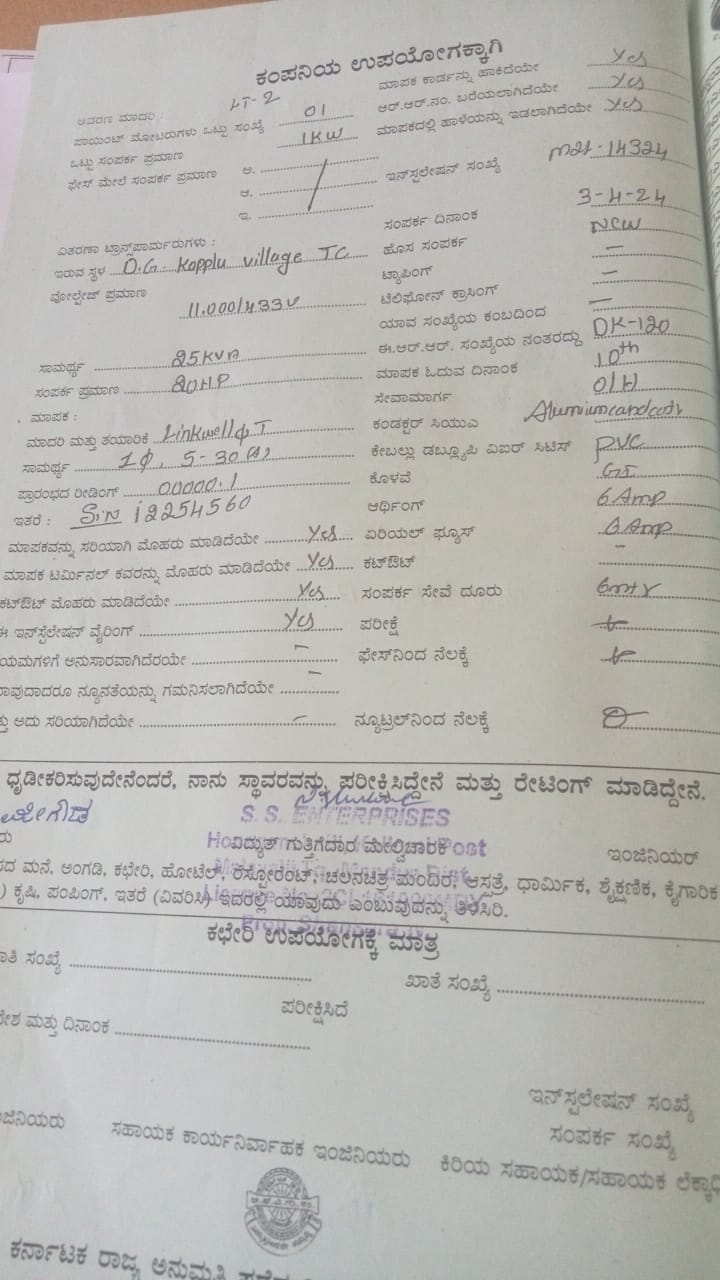 ಕಂಪನಿಯ ಉಪಯೋಗಕ್ಕಾಗಿ
ಆವರಣ ಮಾದರಿ : LT-2 ಮಾಪಕ ಕಾರ್ಡನ್ನು ಹಾಕಿದೆಯೇ Yes
ಪಾಯಿಂಟ್ ಮೋಟರುಗಳು ಒಟ್ಟು ಸಂಖ್ಯೆ 01 ಆರ್.ಆರ್.ನಂ. ಬರೆಯಲಾಗಿದೆಯೇ Yes
ಒಟ್ಟು ಸಂಪರ್ಕ ಪ್ರಮಾಣ 1KW ಮಾಪಕದಲ್ಲಿ ಹಾಳೆಯನ್ನು ಇಡಲಾಗಿದೆಯೇ Yes
ಫೇಸ್ ಮೇಲೆ ಸಂಪರ್ಕ ಪ್ರಮಾಣ ಅ. ಇನ್‌ಸ್ಪಲೇಷನ್ ಸಂಖ್ಯೆ M21-14324
ಆ.
ಇ. ಸಂಪರ್ಕ ದಿನಾಂಕ 3-4-24
ವಿತರಣಾ ಟ್ರಾನ್ಸ್‌ಪಾರ್ಮರುಗಳು : ಹೊಸ ಸಂಪರ್ಕ New
ಇರುವ ಸ್ಥಳ D.G. Kopplu village TC ಟ್ಯಾಪಿಂಗ್ –
ವೋಲ್ಟೇಜ್ ಪ್ರಮಾಣ 11.000/433V ಟೆಲಿಫೋನ್ ಕ್ರಾಸಿಂಗ್ –
ಯಾವ ಸಂಖ್ಯೆಯ ಕಂಬದಿಂದ –
ಸಾಮರ್ಥ್ಯ 25KVA ಈ.ಆರ್.ಆರ್. ಸಂಖ್ಯೆಯ ನಂತರದ್ದು DK-120
ಸಂಪರ್ಕ ಪ್ರಮಾಣ 20HP ಮಾಪಕ ಓದುವ ದಿನಾಂಕ 10th
ಮಾಪಕ : ಸೇವಾಮಾರ್ಗ O/H
ಮಾದರಿ ಮತ್ತು ತಯಾರಿಕೆ Linkwell ಕಂಡಕ್ಟರ್ ಸಿಯುಎ
ಸಾಮರ್ಥ್ಯ 1φ, 5-30(A) ಕೇಬಲ್ಲು ಡಬ್ಲ್ಯೂಪಿ ವಿಐರ್ ಸಿಟಿಸ್ PVC
ಪ್ರಾರಂಭದ ರೀಡಿಂಗ್ 00000.1 ಕೊಳವೆ GI
ಇತರೆ : S:N 12254560 ಆರ್ಥಿಂಗ್ 6 Amp
ಮಾಪಕವನ್ನು ಸರಿಯಾಗಿ ಮೊಹರು ಮಾಡಿದೆಯೇ Yes ಏರಿಯಲ್ ಫ್ಯೂಸ್ 6 Amp
ಮಾಪಕ ಟರ್ಮಿನಲ್ ಕವರನ್ನು ಮೊಹರು ಮಾಡಿದೆಯೇ Yes ಕಟ್‌ಔಟ್ –
ಕಟ್‌ಔಟ್ ಮೊಹರು ಮಾಡಿದೆಯೇ Yes ಸಂಪರ್ಕ ಸೇವೆ ದೂರು 6mtr
ಈ ಇನ್‌ಸ್ಪೆಲೇಷನ್ ವೈರಿಂಗ್ Yes ಪರೀಕ್ಷೆ
ಯಮಗಳಿಗೆ ಅನುಸಾರವಾಗಿದೆರಯೇ – ಫೇಸ್‌ನಿಂದ ನೆಲಕ್ಕೆ
ಾವುದಾದರೂ ನ್ಯೂನತೆಯನ್ನು ಗಮನಿಸಲಾಗಿದೆಯೇ –
ತ್ತು ಅದು ಸರಿಯಾಗಿದೆಯೇ – ನ್ಯೂಟ್ರಲ್‌ನಿಂದ ನೆಲಕ್ಕೆ
ಧೃಡೀಕರಿಸುವುದೇನೆಂದರೆ, ನಾನು ಸ್ಥಾವರವನ್ನು ಪರೀಕ್ಷಿಸಿದ್ದೇನೆ ಮತ್ತು ರೇಟಿಂಗ್ ಮಾಡಿದ್ದೇನೆ.
S. S. ENTERPRISES
ರು ವಿದ್ಯುತ್ ಗುತ್ತಿಗೆದಾರ ಮೇಲ್ವಿಚಾರಕ Post ಇಂಜಿನಿಯರ್
ದ ಮನೆ, ಅಂಗಡಿ, ಕಛೇರಿ, ಹೋಟೆಲ್, ರೆಸ್ಟೋರೆಂಟ್, ಚಲನಚಿತ್ರ ಮಂದಿರ, ಆಸತ್ರೆ, ಧಾರ್ಮಿಕ, ಶೈಕ್ಷಣಿಕ, ಕೈಗಾರಿಕ
) ಕೃಷಿ, ಪಂಪಿಂಗ್, ಇತರೆ (ವಿವರಿಸಿ) ಇದರಲ್ಲಿ ಯಾವುದು ಎಂಬುವುದನ್ನು ತಿಳಿಸಿರಿ.
ಕಛೇರಿ ಉಪಯೋಗಕ್ಕೆ ಮಾತ್ರ
ಾತಿ ಸಂಖ್ಯೆ ಖಾತೆ ಸಂಖ್ಯೆ
ಪರೀಕ್ಷಿಸಿದೆ
ದೇಶ ಮತ್ತು ದಿನಾಂಕ
ಇನ್‌ಸ್ಪಲೇಷನ್ ಸಂಖ್ಯೆ
ಸಂಪರ್ಕ ಸಂಖ್ಯೆ
ಂಜಿನಿಯರು ಸಹಾಯಕ ಕಾರ್ಯನಿರ್ವಾಹಕ ಇಂಜಿನಿಯರು ಕಿರಿಯ ಸಹಾಯಕ/ಸಹಾಯಕ ಲೆಕ್ಕಾಧಿ
ಕರ್ನಾಟಕ ರಾಜ್ಯ ಅನುಮತಿ